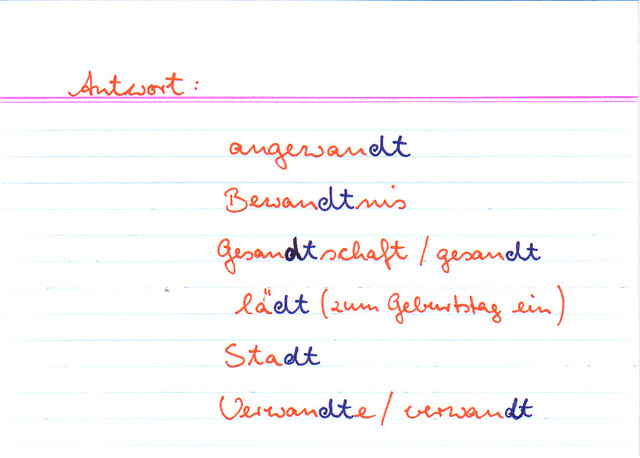 Antwort:
angewandt
Bewandtnis
Gesandtschaft / gesandt
lädt (zum Geburtstag ein)
Stadt
Verwandte / verwandt